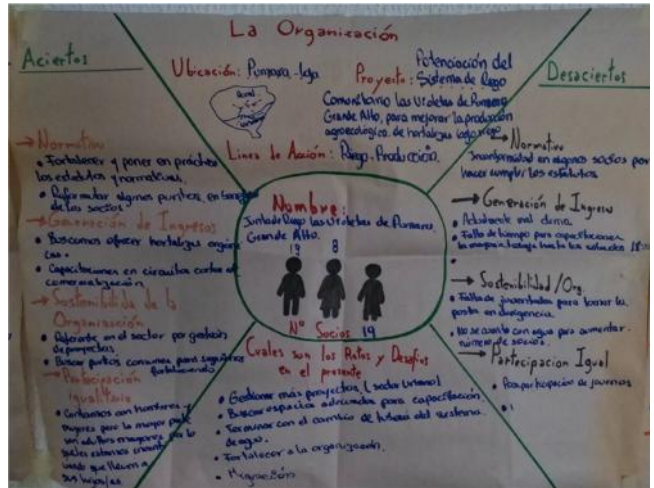 La Organización
Aciertos
Ubicación: Punzara - Loja
Proyecto: Potenciación del
Sistema de Riego
Comunitario las Violetas de Punzara
Grande Alto, para mejorar la producción
agroecológica de hortalizas bajo riego
Linea de Acción: Riego - Producción.
Desaciertos
→ Normativa
• Fortalecer y poner en práctica
los estatutos y normativas.
• Reformular algunos puntos en
de los socios
→ Generación de Ingresos
• Buscamos ofrecer hortalizas orgáni
cas.
• Capacitaciones en circuitos cortos de
comercialización
→ Sostenibilidad de la
Organización
• Referente en el sector por gestión
de proyectos.
• Buscar puntos comunes para seguirnos
fortaleciendo
→ Participación
igualitaria
• Contamos con hombres y
mujeres pero la mayor parte
son adultos mayores por lo
que les estamos
que lleven a
sus hijos/as
Nombre:
Junta de Riego las Violetas de Punzara
Grande Alto.
8
Nº Socios 19
→ Normativa
Inconformidad en algunos socios por
hacer cumplir los estatutos.
→ Generación de Ingreso
• Actualmente mal clima.
• Falta de tiempo para capacitaciones
la mayoría trabaja hasta los sabados
→ Sostenibilidad/Org.
• Falta de juventudes para tomar la
posta en dirigencia.
• No se cuenta con agua para aumentar
número de socios.
→ Participacion Igual
• Poca participación de jovenes
Cuales son los Retos y Desafios
en el presente
• Gestionar más proyectos (sector urbano)
• Buscar espacios adecuados para capacitación.
• Terminar con el cambio de tuberia del sistema
de agua.
• Fortalecer a la organización.
• Migración